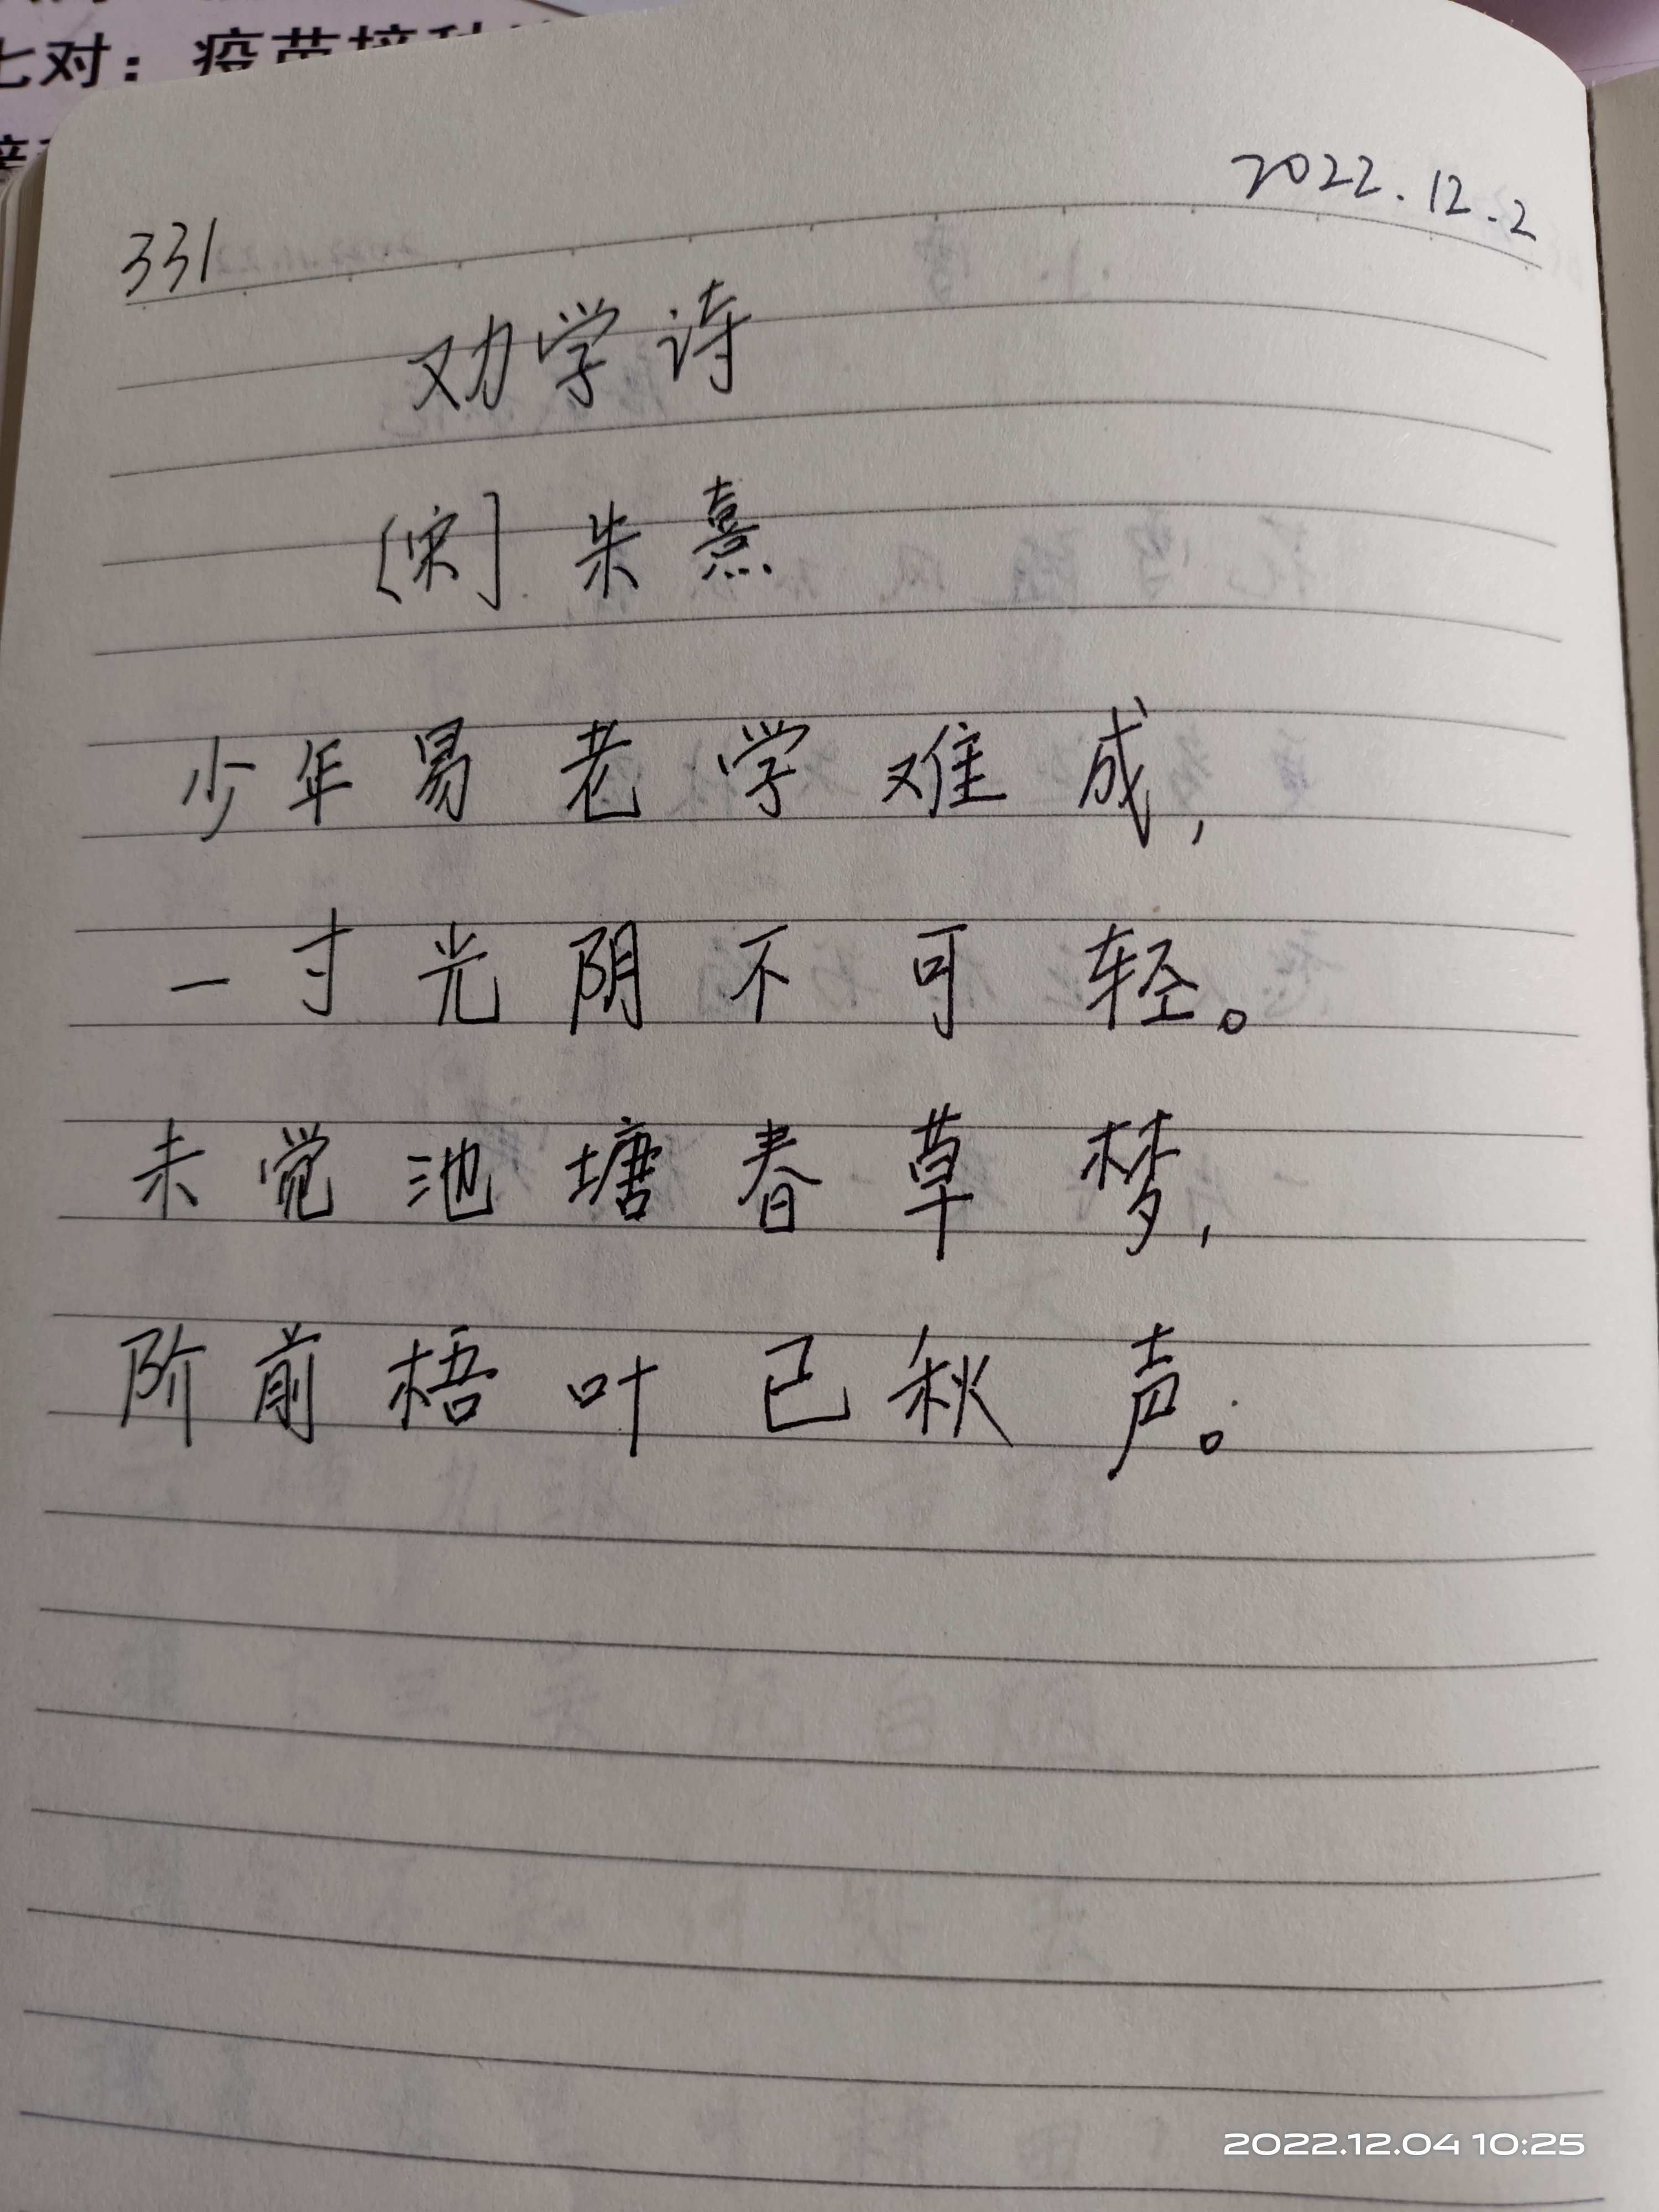 七对：疫苗接种
331
2022.12.2
劝学诗
[宋]朱熹
少年易老学难成，
一寸光阴不可轻。
未觉池塘春草梦，
阶前梧叶已秋声。
2022.12.04 10:25